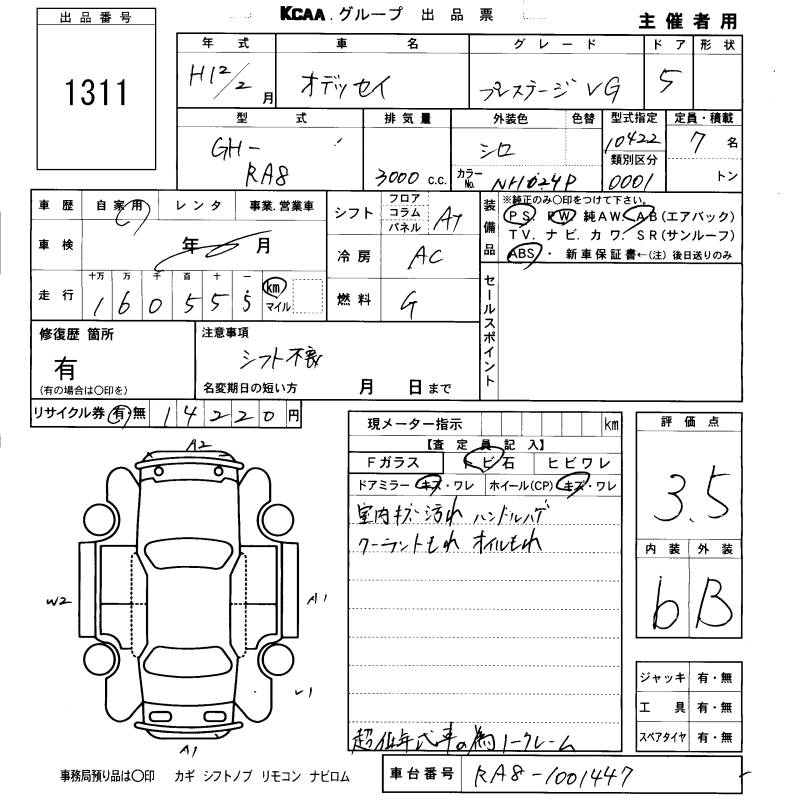 KCAA.グループ 出品票
主催者用
出品番号
1311
年式 車名 グレード ドア 形状
H12/2 月 オデッセイ プレステージ VG 5
型式 排気量 外装色 色替 型式指定 定員・積載
GH-RA8 3000 c.c. シロ 10422 7 名
カラーNo. 類別区分 トン
0001
車歴 自家用 レンタ 事業.営業車
車検 年 月
シフト フロア コラム パネル AT
冷房 AC
燃料 G
走行 十万 万 千 百 十 一 km マイル
1 6 0 5 5 5
装備品 ※純正のみ〇印をつけて下さい。
PS PW 純AW. AB(エアバック)
TV. ナビ. カワ. SR(サンルーフ)
ABS・ 新車保証書←(注)後日送りのみ
セールスポイント
修復歴 箇所
有
(有の場合は〇印を)
注意事項
シフト不良
名変期日の短い方 月 日まで
リサイクル券 有 無 14220 円
現メーター指示 km
【査定員記入】
Fガラス トビ石 ヒビワレ
ドアミラー キズ・ワレ ホイール(CP) キズ・ワレ
室内キズ・汚れ ハンドルハゲ
クーラントもれ オイルもれ
超低年式車の為ノークレーム
評価点
3.5
内装 外装
b B
ジャッキ 有・無
工具 有・無
スペアタイヤ 有・無
A2
W2
A1
A1
事務局預り品は〇印 カギ シフトノブ リモコン ナビロム
車台番号 RA8-1001447